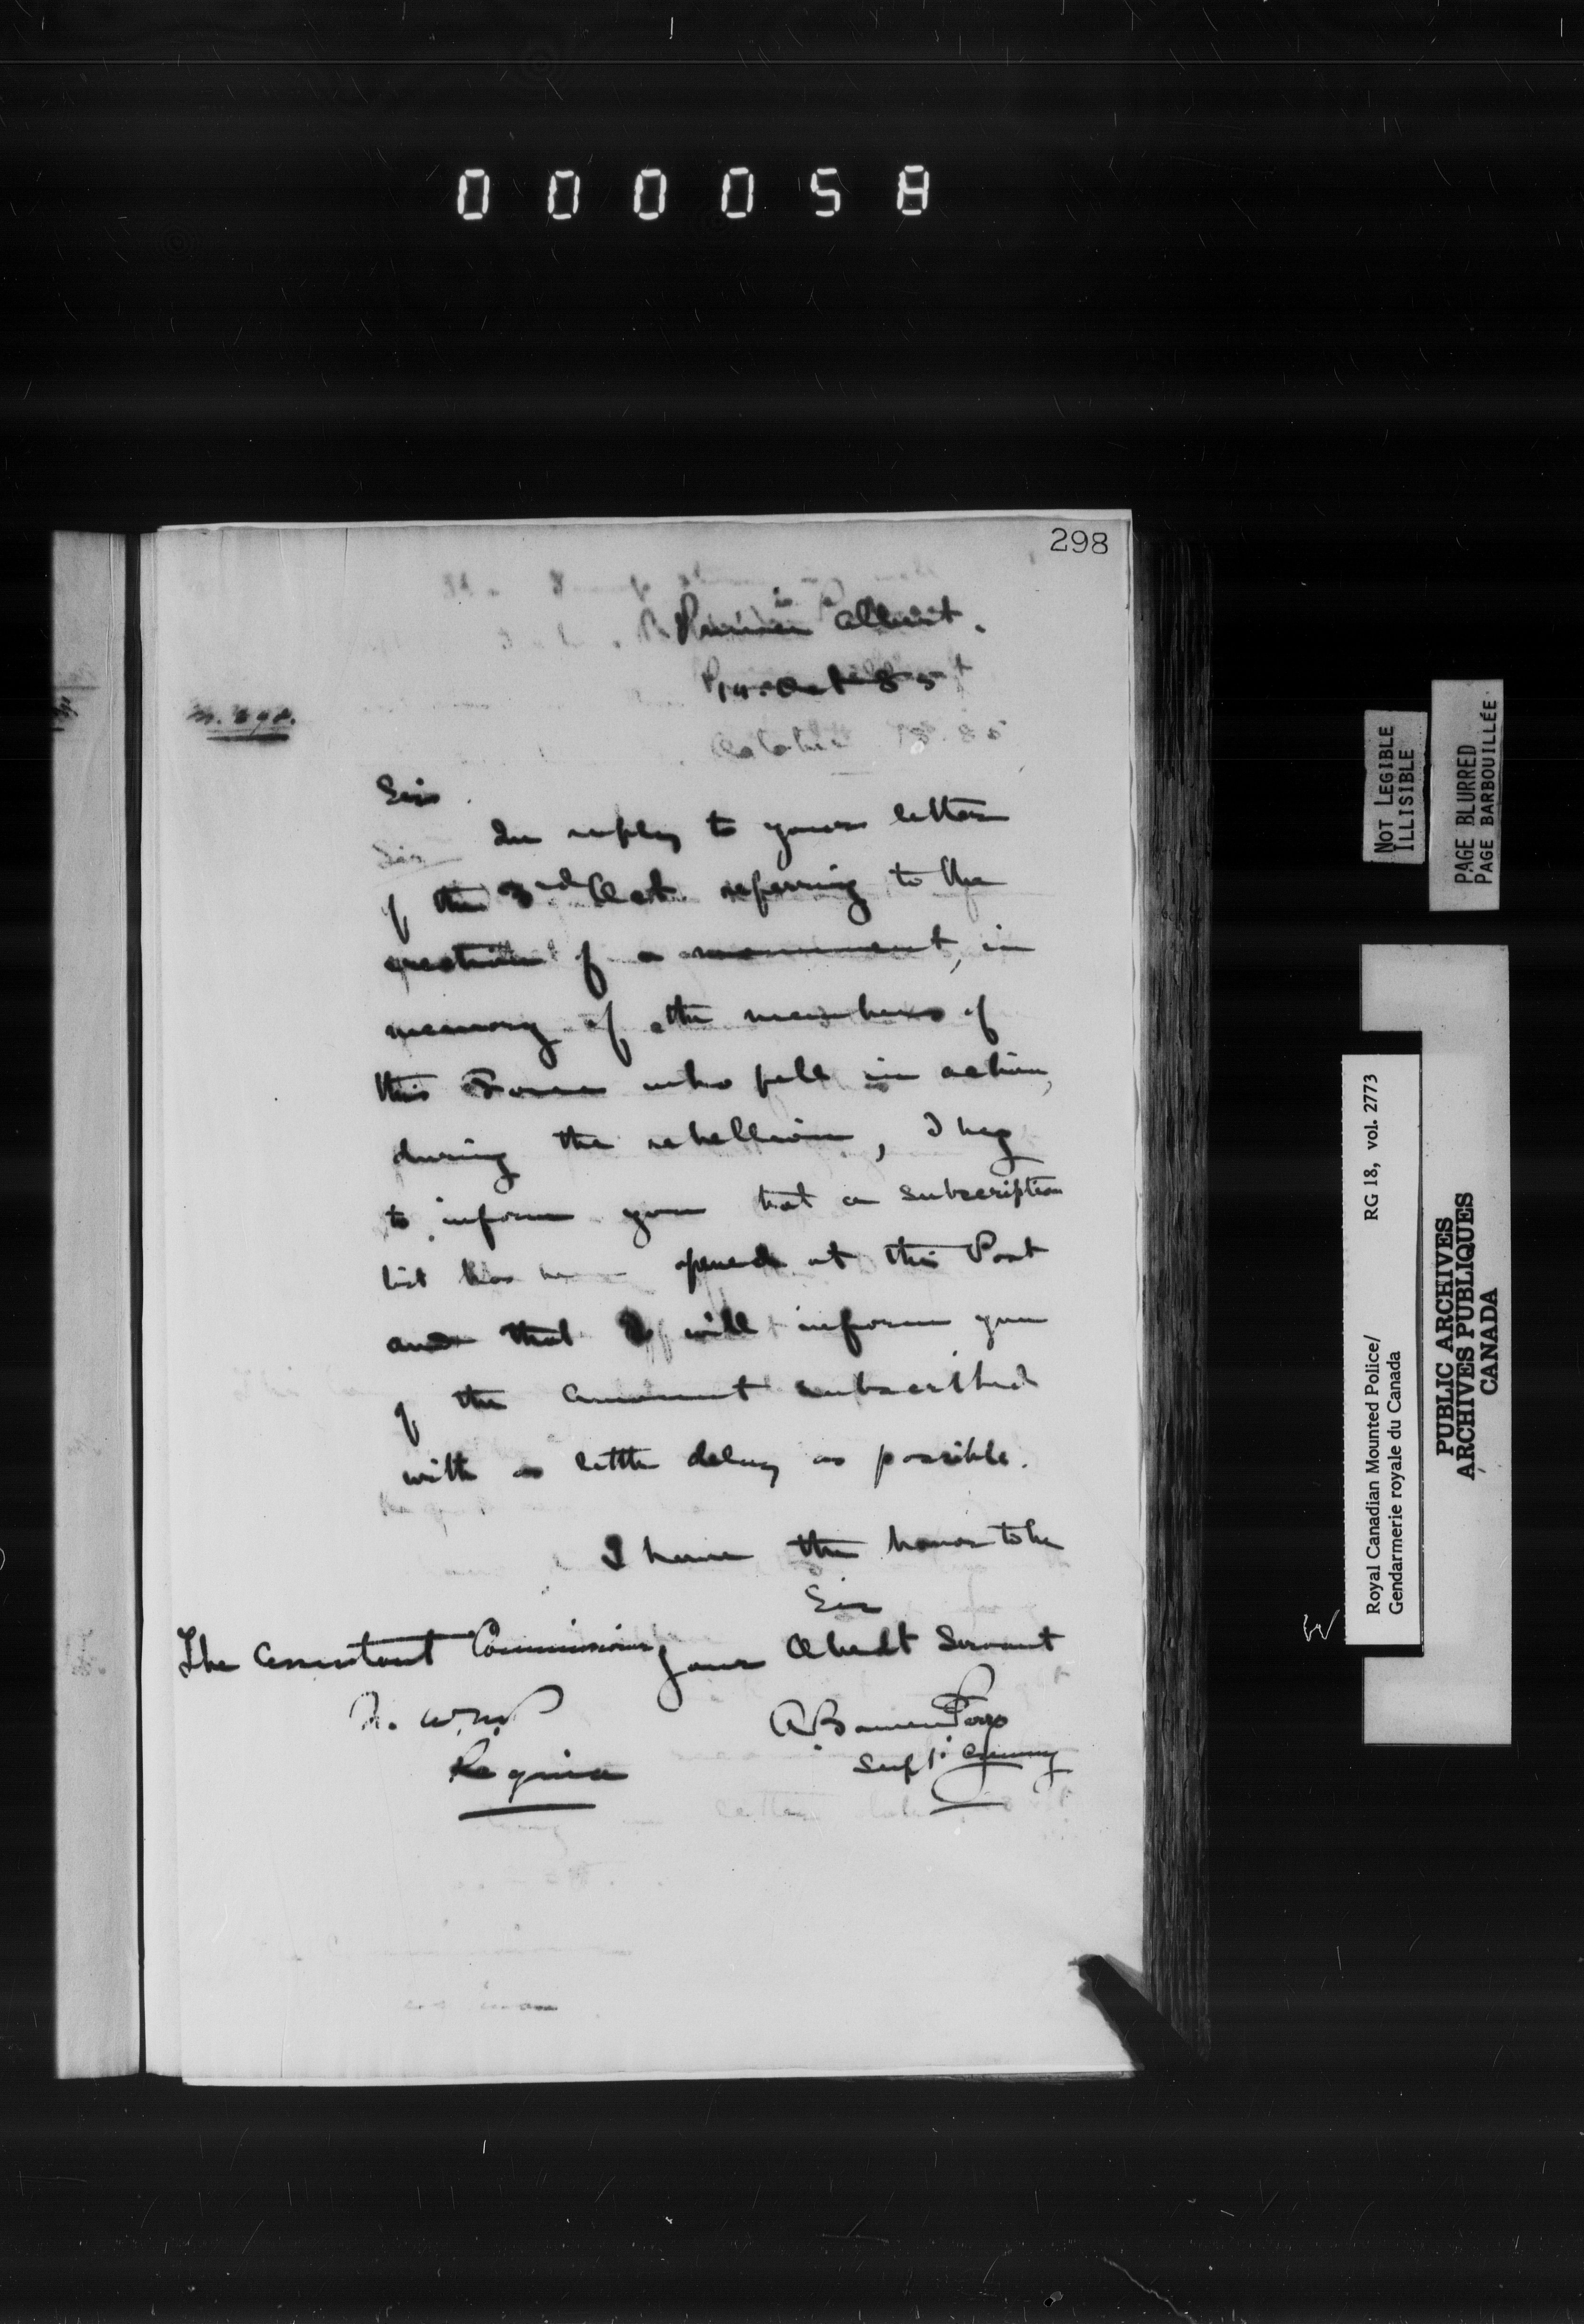 000058
298
Prince Albert.
14. Oct 85
Sir
In reply to your letter
of the 3rd Oct. referring to the
erection of a monument, in
memory of the members of
this Force who fell in action,
during the rebellion, I beg
to inform you that a subscription
list has been opened at this Post
and that I will inform you
of the amount subscribed
with as little delay as possible.
I have the honor to be
Sir
Your Obedt Servant
A. Bowen Perry
Supt. Commg
The Assistant Commissioner
N. W. M. P
Regina
NOT LEGIBLE
ILLISIBLE
PAGE BLURRED
PAGE BARBOUILLÉE
Royal Canadian Mounted Police/
Gendarmerie royale du Canada
RG 18, vol. 2773
PUBLIC ARCHIVES
ARCHIVES PUBLIQUES
CANADA